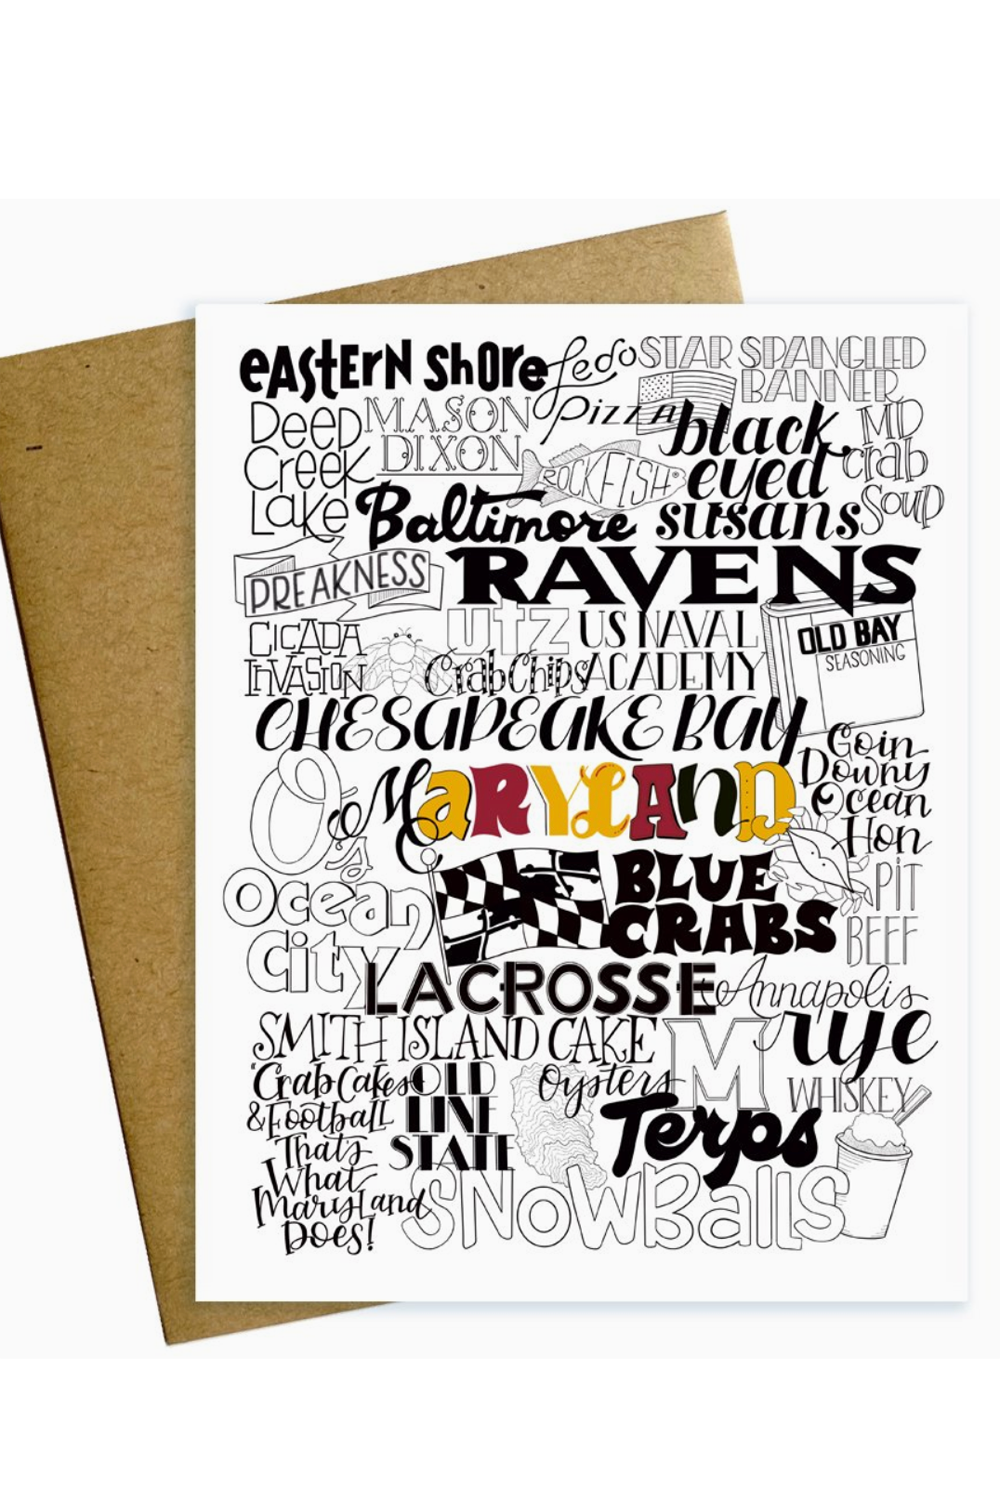 EASTERN SHORE
Ledo
Pizza
STAR SPANGLED
BANNER
Deep
Creek
Lake
MASON
DIXON
ROCKFISH
black
eyed
susans
MD
crab
Soup
Baltimore
PREAKNESS
RAVENS
CICADA
INVASION
utz
Crab Chips
US NAVAL
ACADEMY
OLD BAY
SEASONING
CHESAPEAKE BAY
Goin
Downy
Ocean
Hon
O's
MARYLAND
Ocean
City
BLUE
CRABS
PIT
BEEF
LACROSSE
Annapolis
SMITH ISLAND CAKE
M
rye
WHISKEY
"Crab Cakes
& Football
Thats
What
Maryland
Does!
OLD
LINE
STATE
Oysters
Terps
SNOWBALLS